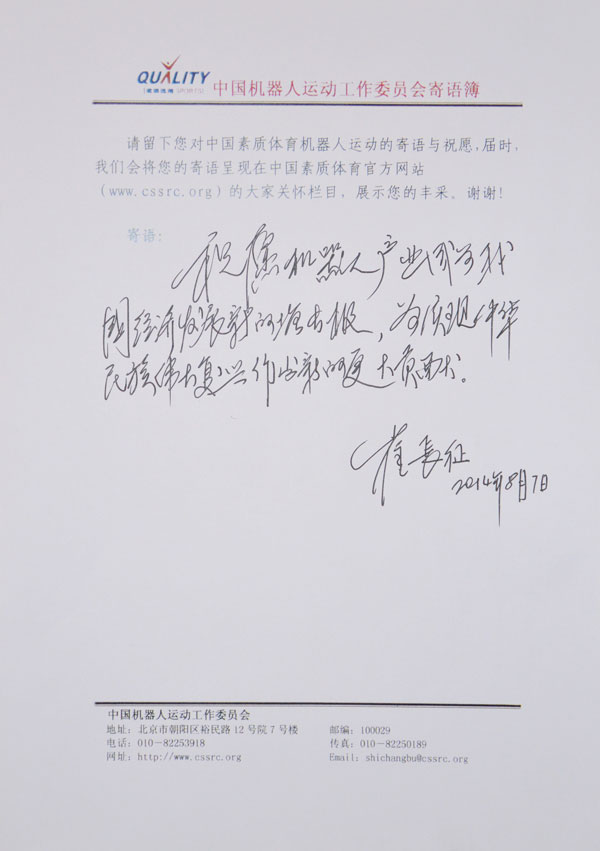 QUALITY
中国机器人运动工作委员会寄语簿
请留下您对中国素质体育机器人运动的寄语与祝愿,届时,
我们会将您的寄语呈现在中国素质体育官方网站
(www.cssrc.org)的大家关怀栏目,展示您的丰采。谢谢!
寄语:
祝愿机器人产业成为我
国经济发展新的增长极,为实现中华
民族伟大复兴作出新的更大贡献。
崔长征
2014年8月7日
中国机器人运动工作委员会
地址:北京市朝阳区裕民路12号院7号楼 邮编:100029
电话:010-82253918 传真:010-82250189
网址:http://www.cssrc.org Email:shichangbu@cssrc.org